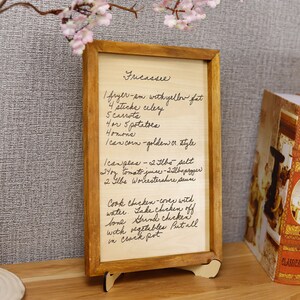 Fricassee
1 fryer-em with yellow fat
4 sticks celery
5 carrots
4 or 5 potatoes
4 onions
1 can corn - golden or style
1 can peas - 2 Tbls salt
24 oz tomato juice - 2 Tbls pepper
2 Tbls Worcestershire
Cook chicken - cover with
water Take chicken off
bone Grind chicken
with vegetables Put all
in crock pot